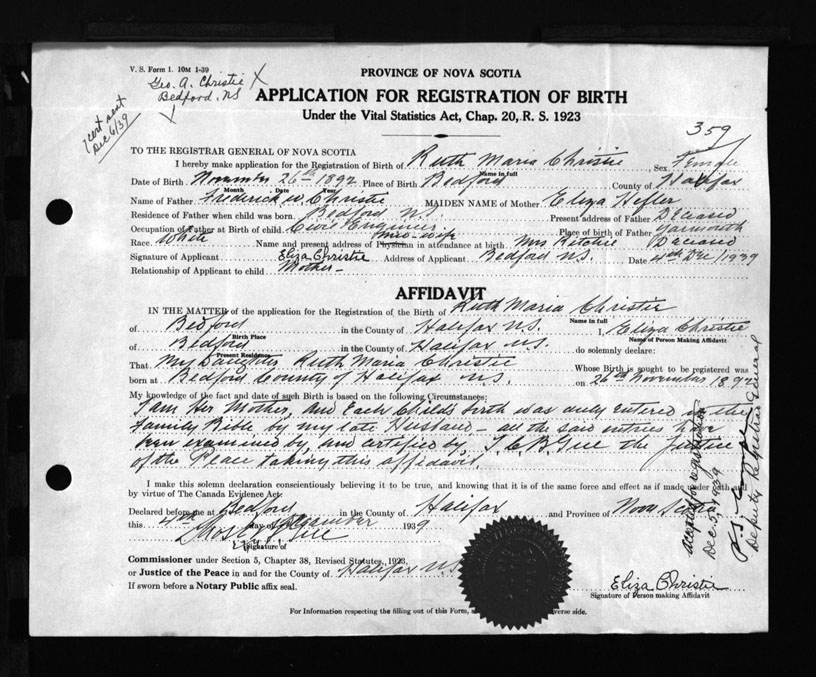 V. S. Form 1. 10M 1-39
Geo. A. Christie X
Bedford. NS
cert sent
Dec 6/39
PROVINCE OF NOVA SCOTIA
APPLICATION FOR REGISTRATION OF BIRTH
Under the Vital Statistics Act, Chap. 20, R. S. 1923
359
TO THE REGISTRAR GENERAL OF NOVA SCOTIA
I hereby make application for the Registration of Birth of Ruth Maria Christie Sex Female
Name in full
Date of Birth November 26th 1892 Place of Birth Bedford County of Halifax
Month Date Year
Name of Father Frederick W. Christie MAIDEN NAME of Mother Eliza Hefler
Residence of Father when child was born. Bedford N.S. Present address of Father Deceased
Occupation of Father at Birth of child. Civil Engineer Place of birth of Father Yarmouth
Mid-wife
Race. White Name and present address of Physician in attendance at birth. Mrs Ritchie Deceased
Signature of Applicant Eliza Christie Address of Applicant Bedford N.S. Date 4th Dec/1939
Relationship of Applicant to child Mother
AFFIDAVIT
IN THE MATTER of the application for the Registration, of the Birth of Ruth Maria Christie
Name in full
of Bedford in the County of Halifax N.S. I, Eliza Christie
Birth Place Name of Person Making Affidavit
of Bedford in the County of Halifax N.S. do solemnly declare:
Present Residence
That My Daughter Ruth Maria Christie Whose Birth is sought to be registered was
born at Bedford County of Halifax N.S. on 26th November 1892
My knowledge of the fact and date of such Birth is based on the following Circumstances:
I am Her Mother, and Each Child's birth was duly Entered in the
Family Bible by my late Husband - all the said entries have
been examined by, and certified by, the Justice
of the Peace taking this affidavit.
I make this solemn declaration conscientiously believing it to be true, and knowing that it is of the same force and effect as if made under oath and
by virtue of The Canada Evidence Act.
Declared before me at Bedford in the County of Halifax and Province of Nova Scotia
this 4th day of December 1939
Signature of
Commissioner under Section 5, Chapter 38, Revised Statutes, 1923.
or Justice of the Peace in and for the County of Halifax N.S.
If sworn before a Notary Public affix seal.
Eliza Christie
Signature of Person making Affidavit
For Information respecting the filling out of this Form, verse side.
accepted for registration
Dec. 5, 1939
Deputy Registrar General